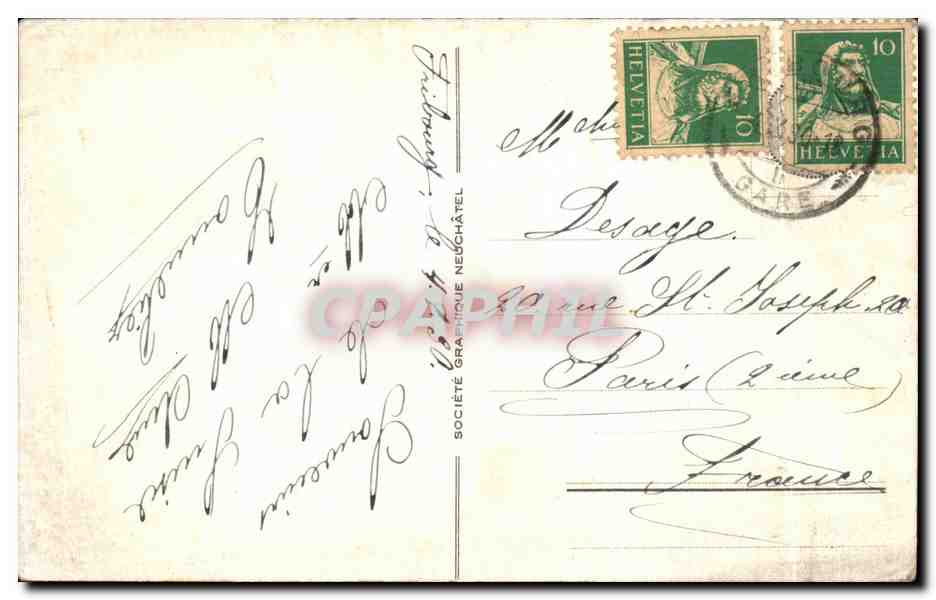 Fribourg, le 4.7.30.
Souvenirs
de la Suisse
Mr et Mme
SOCIÉTÉ GRAPHIQUE NEUCHÂTEL
HELVETIA 10
10 HELVETIA
GARE
Desage.
20 rue St. Joseph 20
Paris (2 ième)
France
CPAPHIL